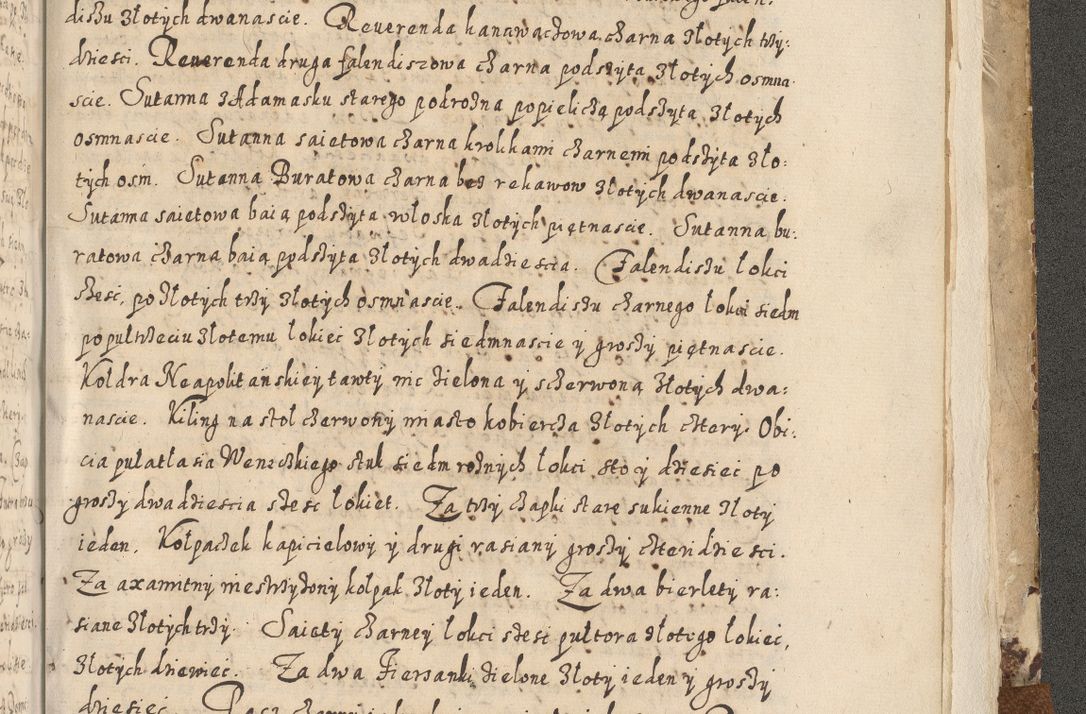 diszu złotych dwanascie. Reuerenda kanawaczowa czarna złotych trzy:
dziesci. Reuerenda druga falendiszowa czarna podszyta złotych osmna
scie. Sutanna z Adamasku starego podrozna popieliczą podszyta złotych
osmnascie. Sutanna saietowa czarna krolikami czarnemi podszyta zło:
tych osm. Sutanna Buratowa czarna bez rekawow złotych dwanascie.
Sutanna saietowa baią podszyta włoska złotych piętnascie. Sutanna bu:
ratowa czarna baią podszyta złotych dwadziescia. Falendiszu lokci
szesc, po złotych trzy złotych osmnascie. Falendiszu czarnego lokci siedm
po pułtrzeciu złotemu lokiec złotych siedmnascie y groszy piętnascie.
Kołdra Neapolitanskiey tawty nic zielona y sczerwoną złotych dwa:
nascie. Kiling na stol czerwony miasto kobiercza złotych cztery. Obi:
cia pułatłasia Weneczkiego stuk siedm roznych lokci sto y dziesiec po
groszy dwadziescia szesc lokiet. Za trzy czapki stare sukienne złoty
ieden. Kołpaczek kapicielowy y drugi rasiany groszy czteridziesci.
Za axamitny niestrzyzony kołpak złoty ieden. Za dwa bierlety ra:
siane złotych trzy. Saiety czarney lokci szesc pułtora złotego lokiec,
złotych dziewiec. Za dwa Fierzanki zielone złoty ieden y groszy
dziesiec.